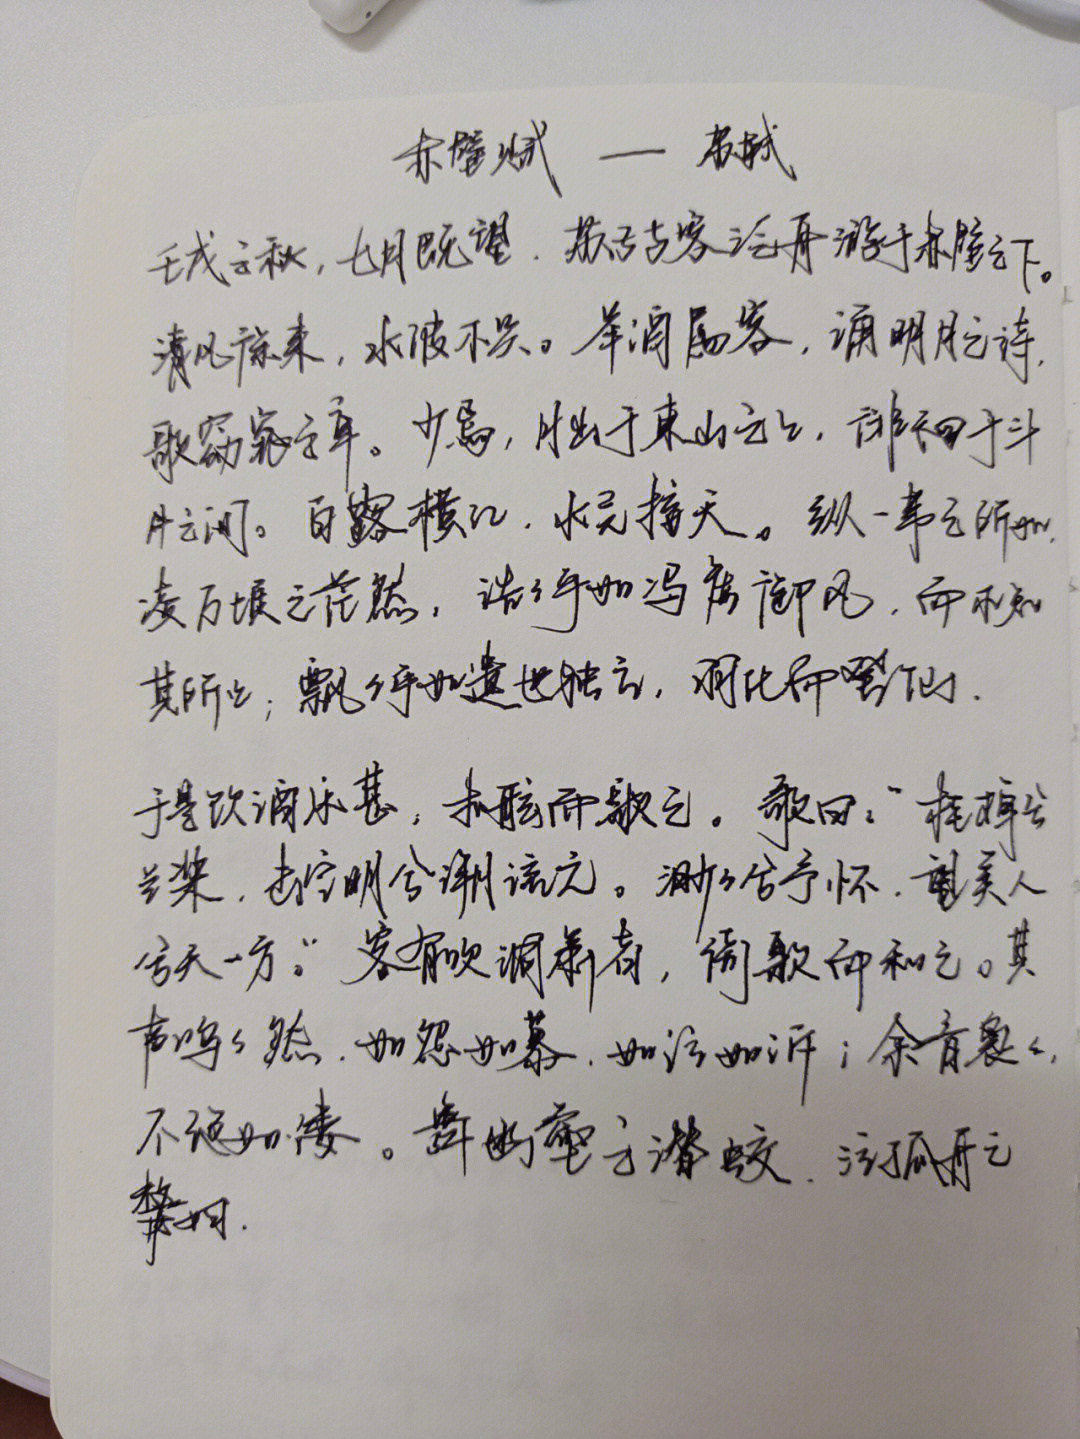 赤壁赋 — 苏轼
壬戌之秋，七月既望，苏子与客泛舟游于赤壁之下。
清风徐来，水波不兴。举酒属客，诵明月之诗，
歌窈窕之章。少焉，月出于东山之上，徘徊于斗
牛之间。白露横江，水光接天。纵一苇之所如，
凌万顷之茫然，浩浩乎如冯虚御风，而不知
其所止；飘飘乎如遗世独立，羽化而登仙。
于是饮酒乐甚，扣舷而歌之。歌曰：“桂棹兮
兰桨，击空明兮溯流光。渺渺兮予怀，望美人
兮天一方。”客有吹洞箫者，倚歌而和之。其
声呜呜然，如怨如慕，如泣如诉；余音袅袅，
不绝如缕。舞幽壑之潜蛟，泣孤舟之
嫠妇。